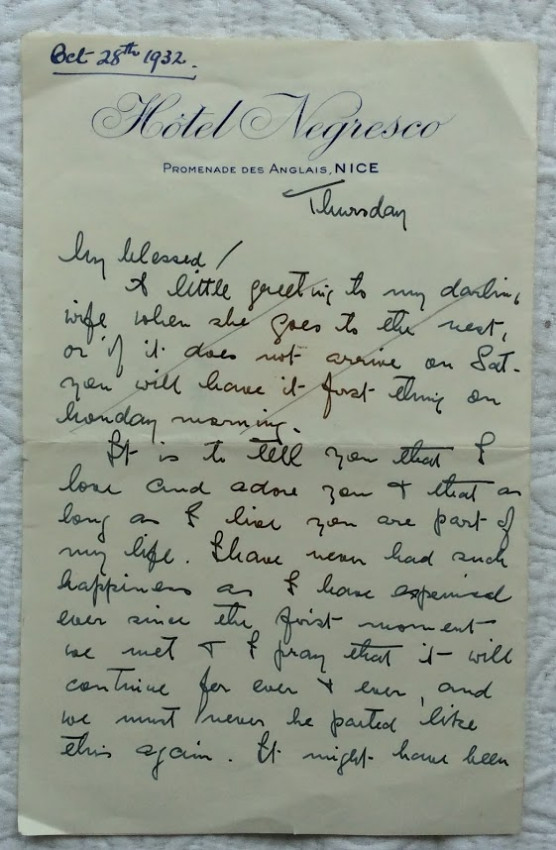 Oct 28th 1932.
Hôtel Negresco
PROMENADE DES ANGLAIS, NICE
Thursday
My blessed /
A little greeting to my darling
wife when she goes to the nest,
or if it does not arrive on Sat.
you will have it first thing on
Monday morning.
It is to tell you that I
love and adore you & that as
long as I live you are part of
my life. I have never had such
happiness as I have
ever since the first moment
we met & I pray that it will
continue for ever & ever, and
we must never be parted like
this again. It might have been